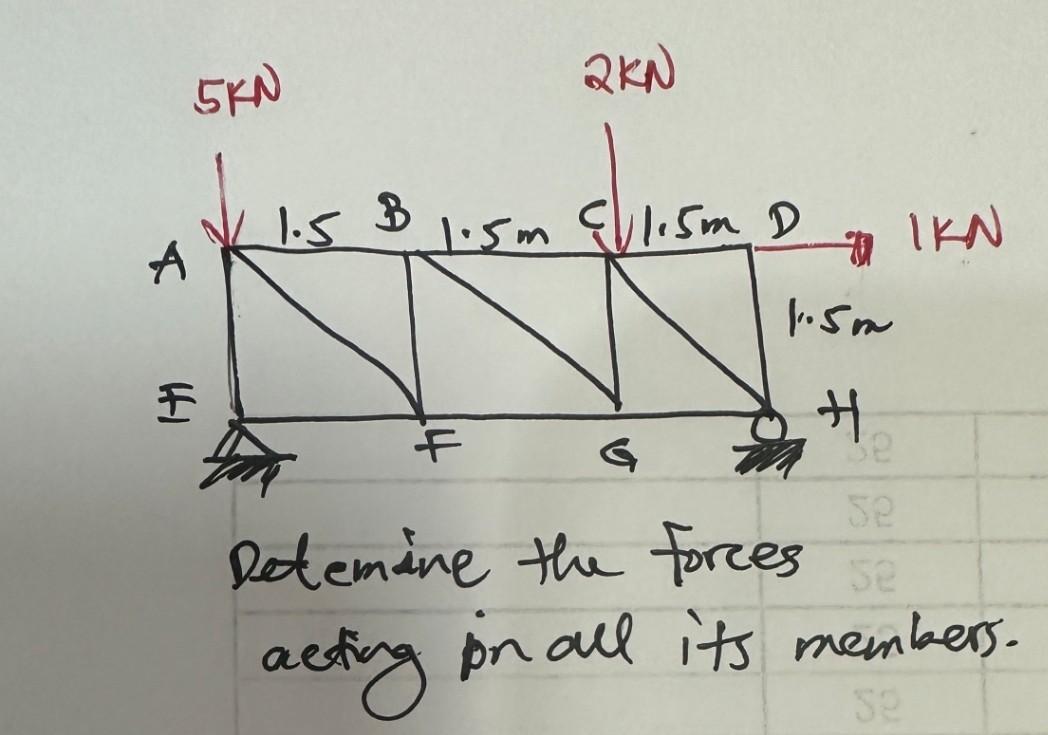 5KN 2KN
A 1.5 B 1.5m C 1.5m D 1KN
1.5m
E F G H
Detemine the forces
acting on all its members.
26
26
26
26